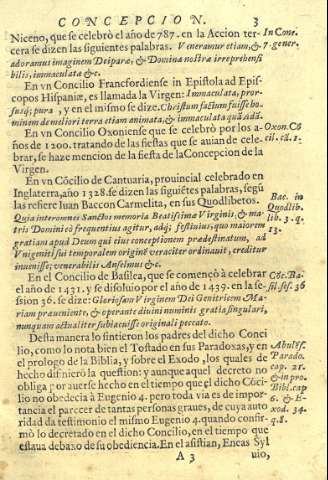 CONCEPCION. 3
Niceno, que se celebrò el año de 787. en la Accion ter-
cera se dizen las siguientes palabras. Veneramur etiam, &
adoramus imaginem Deiparæ, & Domina nostra irreprehensi
bilis, immaculata &c.
In Conc.
7. gener.
En vn Concilio Francfordiense in Epistola ad Epis-
copos Hispaniæ, es llamada la Virgen: Immaculata, pror-
sus; pura, y en el mismo se dize. Christum factum fuisse ho-
minem, de meliori terra etiam animata, & immaculata quā Adā.
En vn Concilio Oxoniense que se celebrò por los a-
ños de 1200. tratando de las fiestas que se auian de cele-
brar, se haze mencion de la fiesta de la Concepcion de la
Virgen.
Oxon. Cō
cil. cā. 1.
En vn Cōcilio de Cantuaria, prouincial celebrado en
Inglaterra, año 1328. se dizen las siguiētes palabras, segū
las refiere Iuan Baccon Carmelita, en sus Quodlibetos.
Quia inter omnes Sanctos memoria Beatissima Virginis, & ma-
tris Domini eò frequentius agitur, adeò; festiuius, quo maiorem
gratiam apud Deum qui eius conceptionem prædestinatum, ad
Vnigeniti sui temporalem originē veraciter ordinauit, creditur
inuenisse; venerabilis Anselmus &c.
Bac. in
Quodlib.
lib. 3. q.
13.
En el Concilio de Basilea, que se começò à celebrar
el año de 1431. y se disoluio por el año de 1439. en la se-
ssion 36. se dize: Gloriosam Virginem Dei Genitricem Ma-
riam præueniente, & operante diuini numinis gratia singulari,
nunquam actualiter subiacuisse originali peccato.
Cōc. Ba-
sil. sess. 36
Desta manera lo sintieron los padres del dicho Conci
lio, como lo nota bien el Tostado en sus Paradoxas, y en
el prologo de la Biblia, y sobre el Exodo, los quales de
hecho difinierō la question: y aunque aquel decreto no
obliga por auerse hecho en el tiempo que el dicho Cōci-
lio no obedecia à Eugenio 4. pero toda via es de impor-
tancia el parecer de tantas personas graues, de cuya auto
ridad da testimonio el mismo Eugenio 4. quando confir-
mò lo decretado en el dicho Concilio, en el tiempo que
estaua debaxo de su obediencia. En el asistian, Eneas Syl
Abulēs.
Parado.
cap. 21.
& in pro.
Bibl. cap
6. & E-
xod. 34.
q. 8.
A 3 uio,